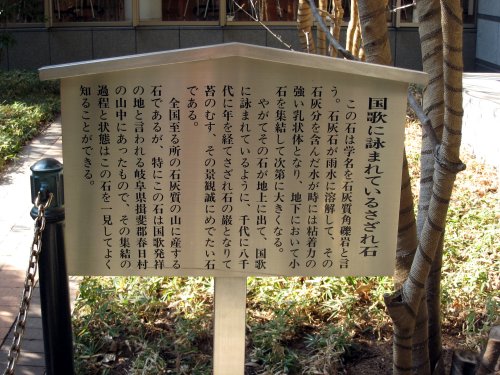 国歌に詠まれているさざれ石
この石は学名を石灰質角礫岩と言
う。石灰石が雨水に溶解して、その
石灰分を含んだ水が時には粘着力の
強い乳状体となり、地下において小
石を集結して次第に大きくなる。
やがてその石が地上に出て、国歌
に詠まれているように、千代に八千
代に年を経てさざれ石の巌となりて
苔のむす、その景観誠にめでたい石
である。
全国至る所の石灰質の山に産する
石であるが、特にこの石は国歌発祥
の地と言われる岐阜県揖斐郡春日村
の山中にあったもので、その集結の
過程と状態はこの石を一見してよく
知ることができる。